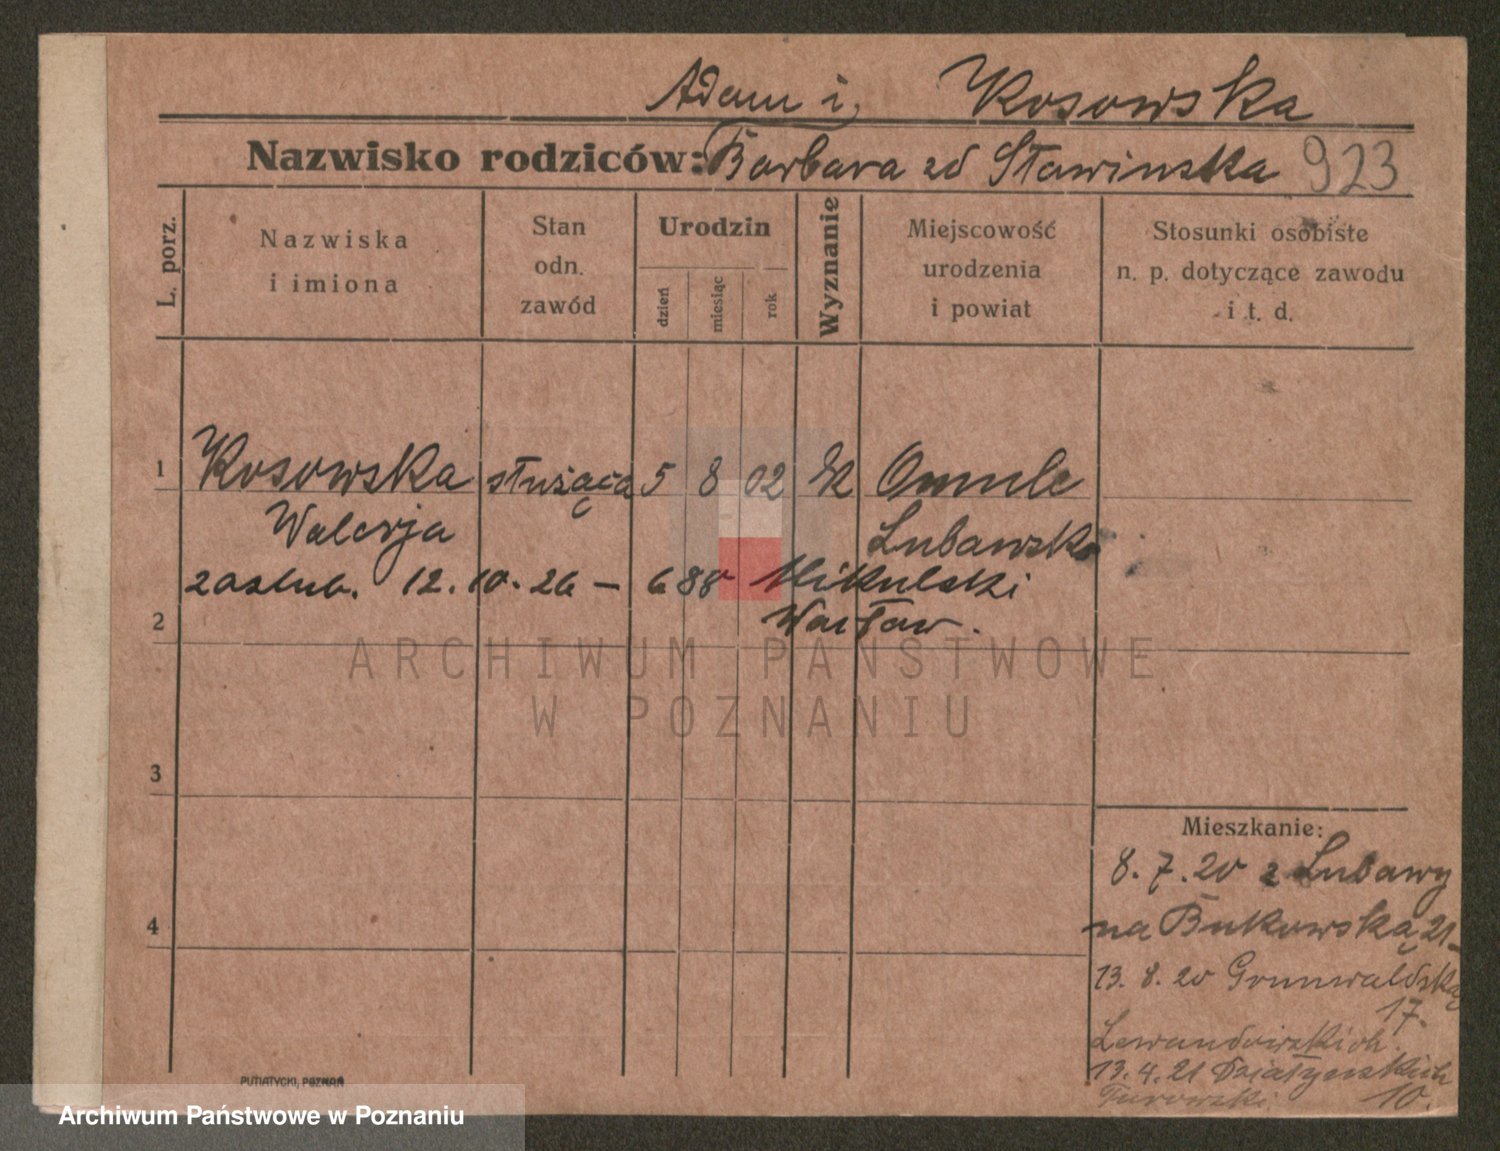 Adam i, Kosowska
Nazwisko rodziców: Barbara zd Sławinska 923
L. porz.
Nazwiska
i imiona
Stan
odn.
zawód
Urodzin
dzień
miesiąc
rok
Wyznanie
Miejscowość
urodzenia
i powiat
Stosunki osobiste
n. p. dotyczące zawodu
i t. d.
1 Kosowska służąca 5 8 02 rk Omule
Walerja Lubawska
zaslub. 12.10.26 — 688 Mikulski
2 Wacław.
ARCHIWUM PAŃSTWOWE
W POZNANIU
3
4
Mieszkanie:
8.7.20 z Lubawy
na Bukowską 21
13.8.20 Grunwaldską
17.
Lewandowskich.
13.4.21 Działyńskich
Turowski 10.
PUTIATYCKI, POZNAŃ
Archiwum Państwowe w Poznaniu